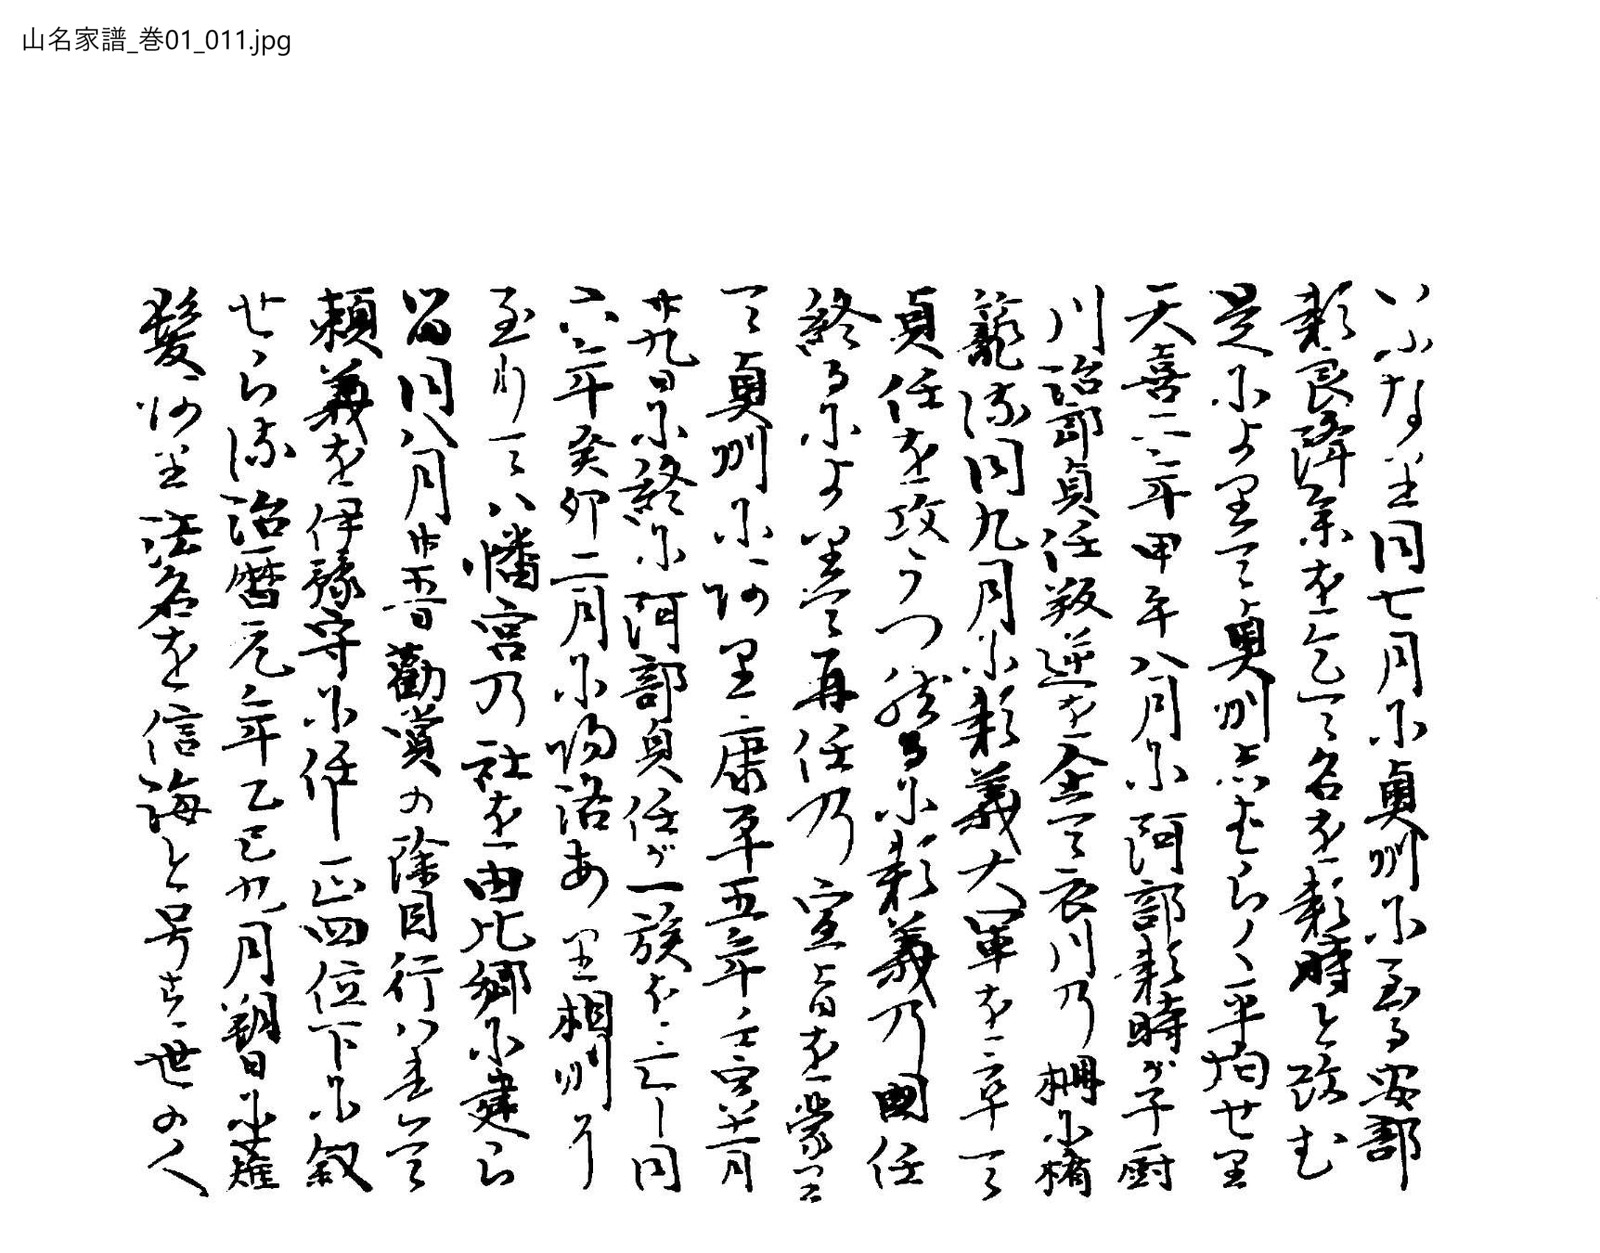 山名家譜_巻01_011.jpg
いふなり同七月に奥州に至る安部
頼良降参を乞て名を頼時と改む
是によりて奥州しはらく平均せり
天喜六年甲午八月に阿部頼時が子厨
川治郎貞任叛逆を企て衣川乃柵に楯
籠る同九月に頼義大軍を卒て
貞任を攻うつ然るに頼義乃國任
終るによりて再任乃宣旨を蒙り
て奥州にあり康平五年壬寅十二月
廿九日に終に阿部貞任が一族を亡し同
六年癸卯二月に帰洛あり相州に
至りて八幡宮乃社を由比郷に建ら
る同八月廿五日勧賞の除目行はれて
頼義を伊豫守に任し正四位下に叙
せらる治暦元年乙巳九月朔日に薙
髪あり法名を信海と号す世の人